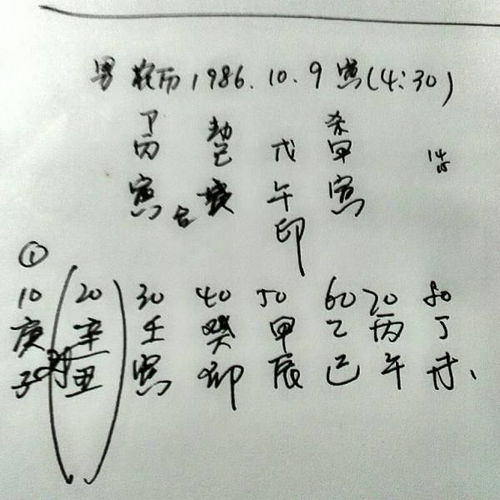 男 农历 1986.10.9 寅(4:30)
卩 劫 杀
丙 己 戊 甲
寅 亥 午 寅
印
①
10 20 30 40 50 60 70 80
庚 辛 壬 癸 甲 乙 丙 丁
子 丑 寅 卯 辰 巳 午 未